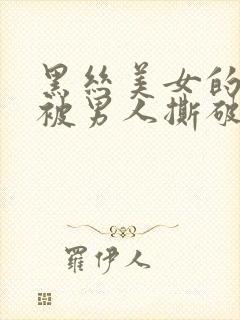 黑丝美女的
被男人撕破
罗伊人